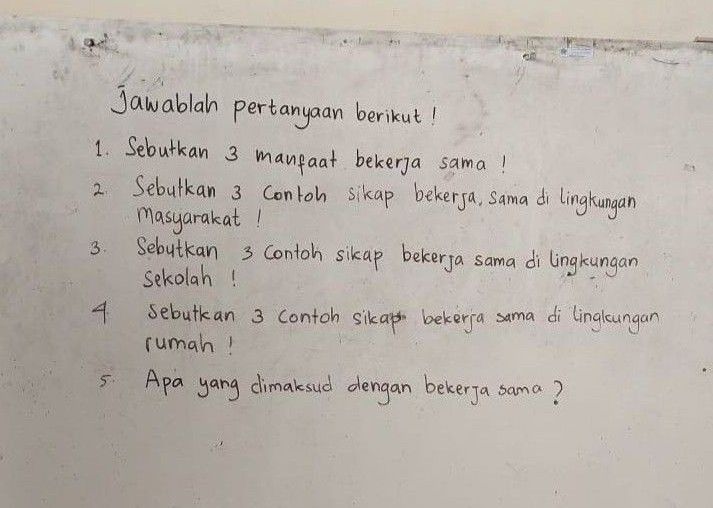 Jawablah pertanyaan berikut !
1. Sebutkan 3 manfaat bekerja sama !
2. Sebutkan 3 Contoh sikap bekerja, sama di lingkungan
Masyarakat !
3. Sebutkan 3 Contoh sikap bekerja sama di lingkungan
Sekolah !
4 Sebutkan 3 Contoh sikap bekerja sama di lingkungan
rumah !
5. Apa yang dimaksud dengan bekerja sama ?